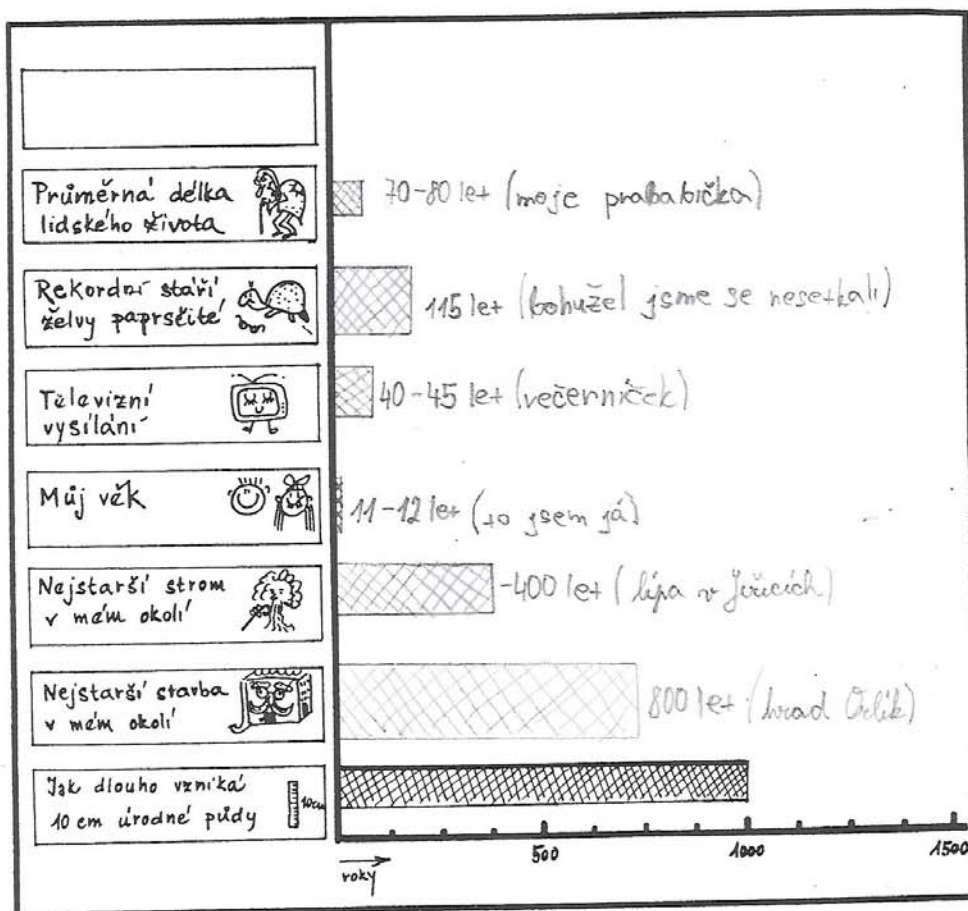 Průměrná délka
lidského života
70-80 let (moje prababička)
Rekordní stáří
želvy paprsčité
115 let (bohužel jsme se nesetkali)
Televizní
vysílání
40-45 let (večerníček)
Můj věk
11-12 let (to jsem já)
Nejstarší strom
v mém okolí
-400 let (lípa v Jiřicích)
Nejstarší stavba
v mém okolí
800 let (hrad Orlík)
Jak dlouho vzniká
10 cm úrodné půdy
10cm
500
1000
1500
roky